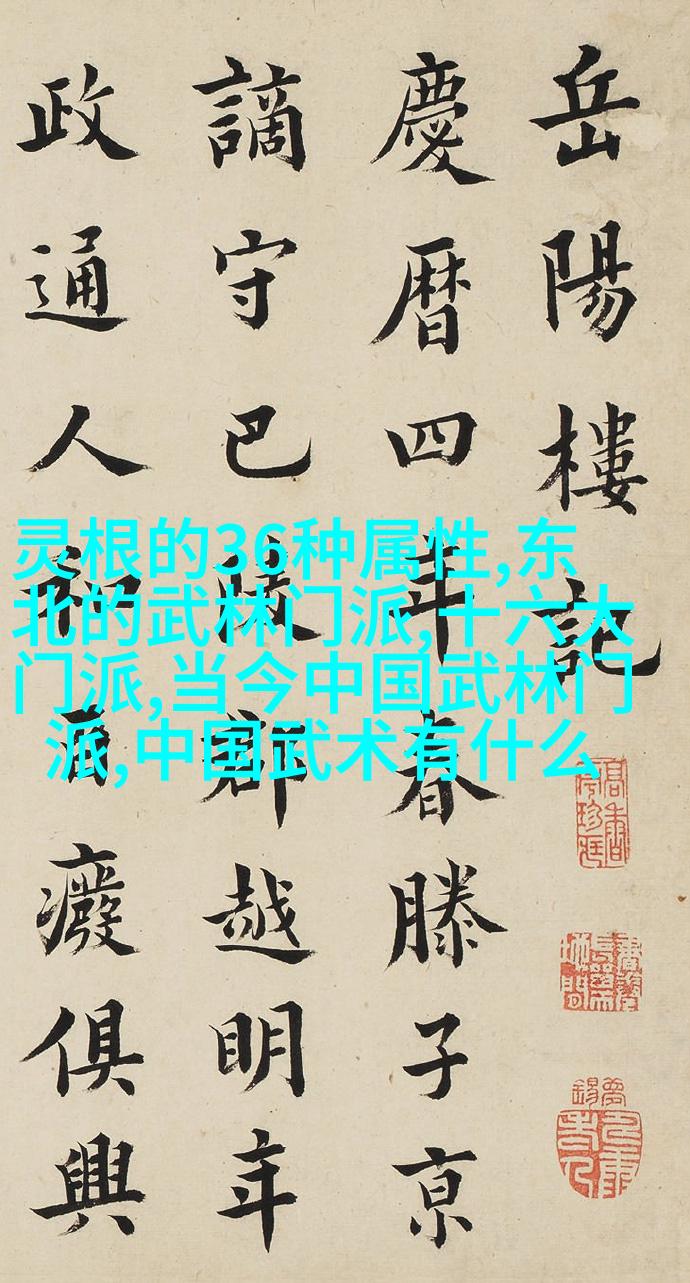 岳陽樓記
慶暦四年春滕子亰
謫守巴陵郡越明年
政通人和百癈俱興
灵根的36种属性,东
北的武林门派,十六大
门派,当今中国武林门
派,中国武术有什么